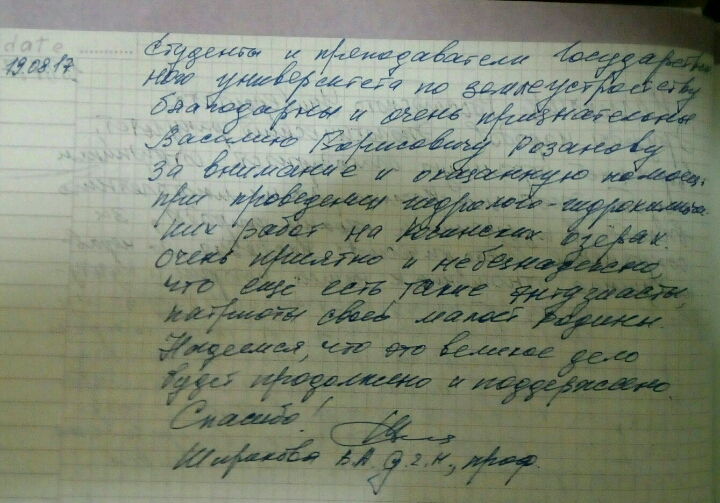 date ............
19.08.17
Студенты и преподаватели Государствен
ного университета по землеустройству
благодарны и очень признательны
Василию Борисовичу Розанову
за внимание и оказанную помощь
при проведении гидролого-гидрохимиче
ких работ на озёрах.
Очень приятно и небезнадёжно,
что ещё есть такие энтузиасты,
патриоты своей малой Родины.
Надеемся, что это великое дело
будет продолжено и поддержано.
Спасибо!
Широкова В.А. д.г.н., проф.